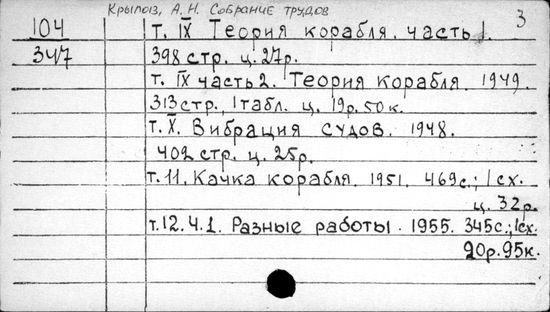 Крылов, А. Н. Собрание трудов
3
104
т. IX Теория корабля. часть 1.
347
398 стр. ц. 27р.
т. IX часть 2. Теория корабля. 1949.
313 стр., 1 табл. ц. 19р. 50к.
т. X. Вибрация судов. 1948.
402 стр. ц. 25р.
т. 11. Качка корабля. 1951. 469с.; 1 сх.
ц. 32р.
т. 12. Ч. 1. Разные работы. 1955. 345с.; 1 сх.
20р. 95к.